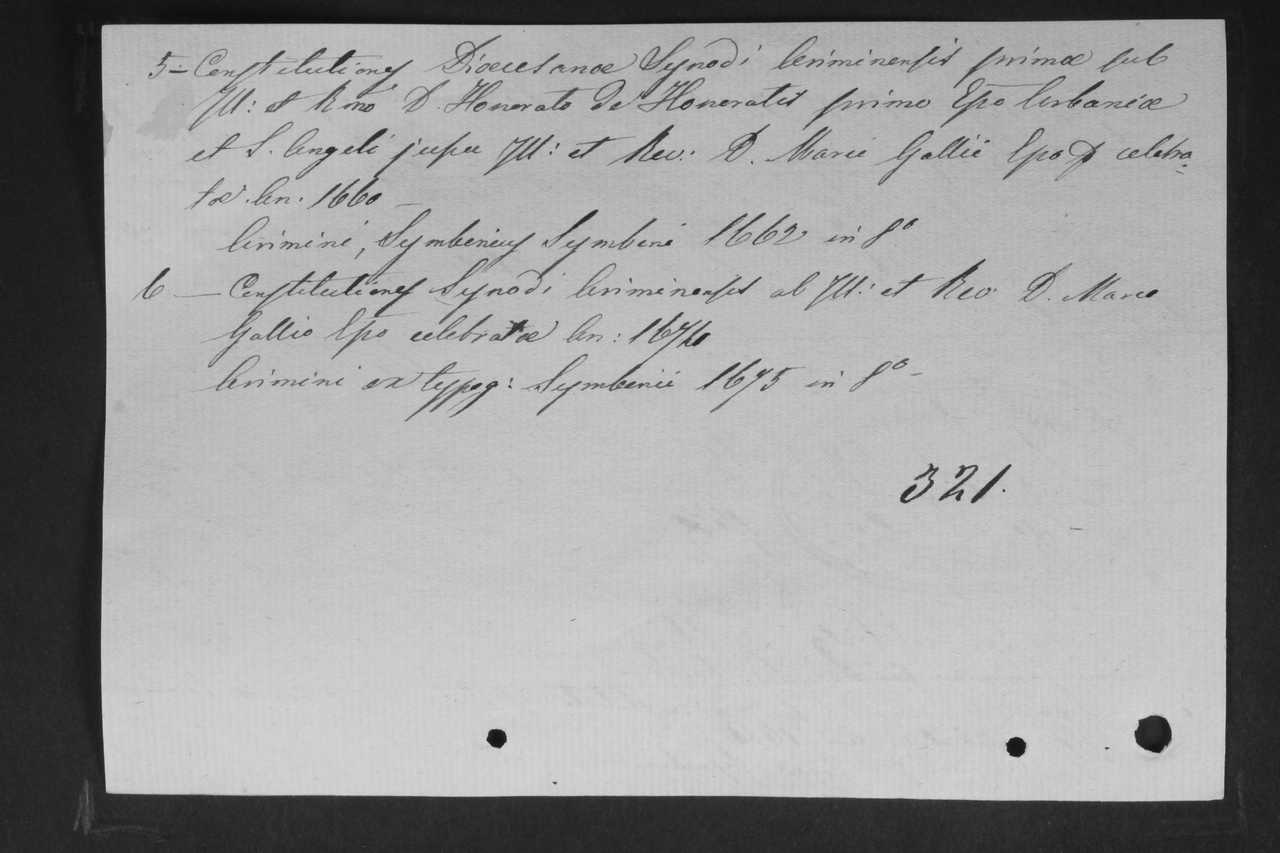 5 - Constitutiones Dioecesanæ Synodi Ariminensis primæ sub
Ill: et Rmo D. Honorato de Honoratis primo Epo Urbaniæ
et S. Angeli jussu Ill: et Rev: D. Marii Gallii Epo celebra-
tæ An. 1660 -
Arimini, Symbenius Symbeni 1662 in 8º
6 - Constitutiones Synodi Ariminensis ab Ill: et Rev. D. Mario
Gallio Epo celebratæ An: 1674
Arimini ex typog: Symbenii 1675 in 8º -
321.